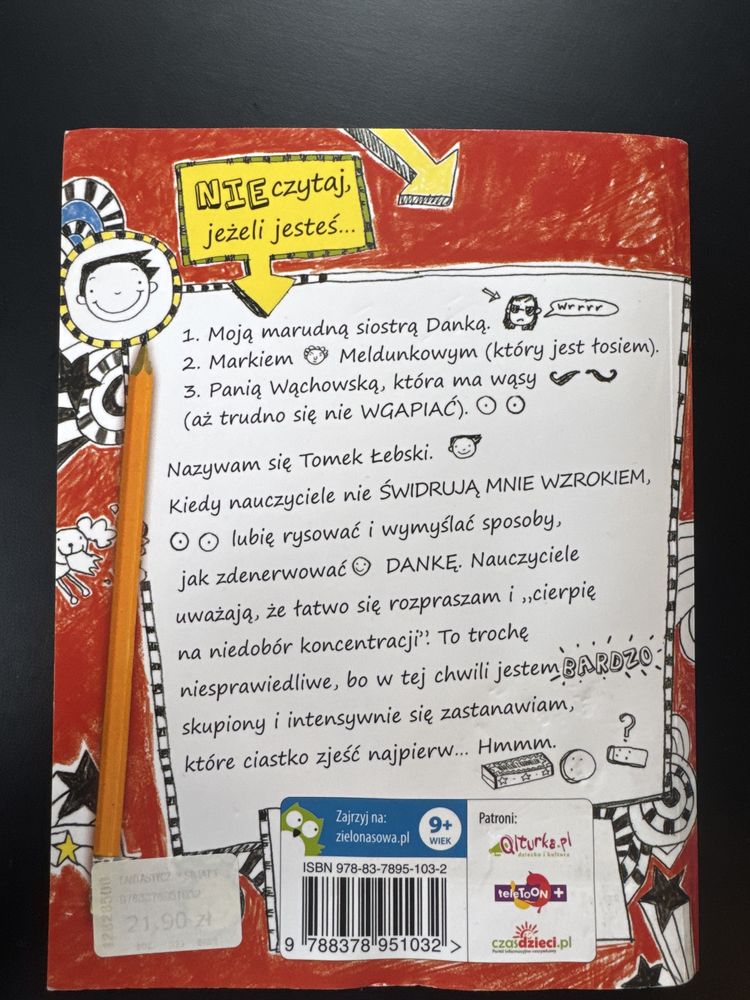 NIE czytaj,
jeżeli jesteś...
1. Moją marudną siostrą Danką.
Wrrrr
2. Markiem Meldunkowym (który jest łosiem).
3. Panią Wąchowską, która ma wąsy
(aż trudno się nie WGAPIAĆ).
Nazywam się Tomek Łebski.
Kiedy nauczyciele nie ŚWIDRUJĄ MNIE WZROKIEM,
lubię rysować i wymyślać sposoby,
jak zdenerwować DANKĘ. Nauczyciele
uważają, że łatwo się rozpraszam i „cierpię
na niedobór koncentracji”. To trochę
niesprawiedliwe, bo w tej chwili jestem BARDZO
skupiony i intensywnie się zastanawiam,
które ciastko zjeść najpierw... Hmmm.
?
Zajrzyj na:
zielonasowa.pl
9+
WIEK
Patroni:
Qlturka.pl
dziecko i kultura
teleTOON+
czasdzieci.pl
ISBN 978-83-7895-103-2
9 788378 951032 >
9788378951032
21.90 zł